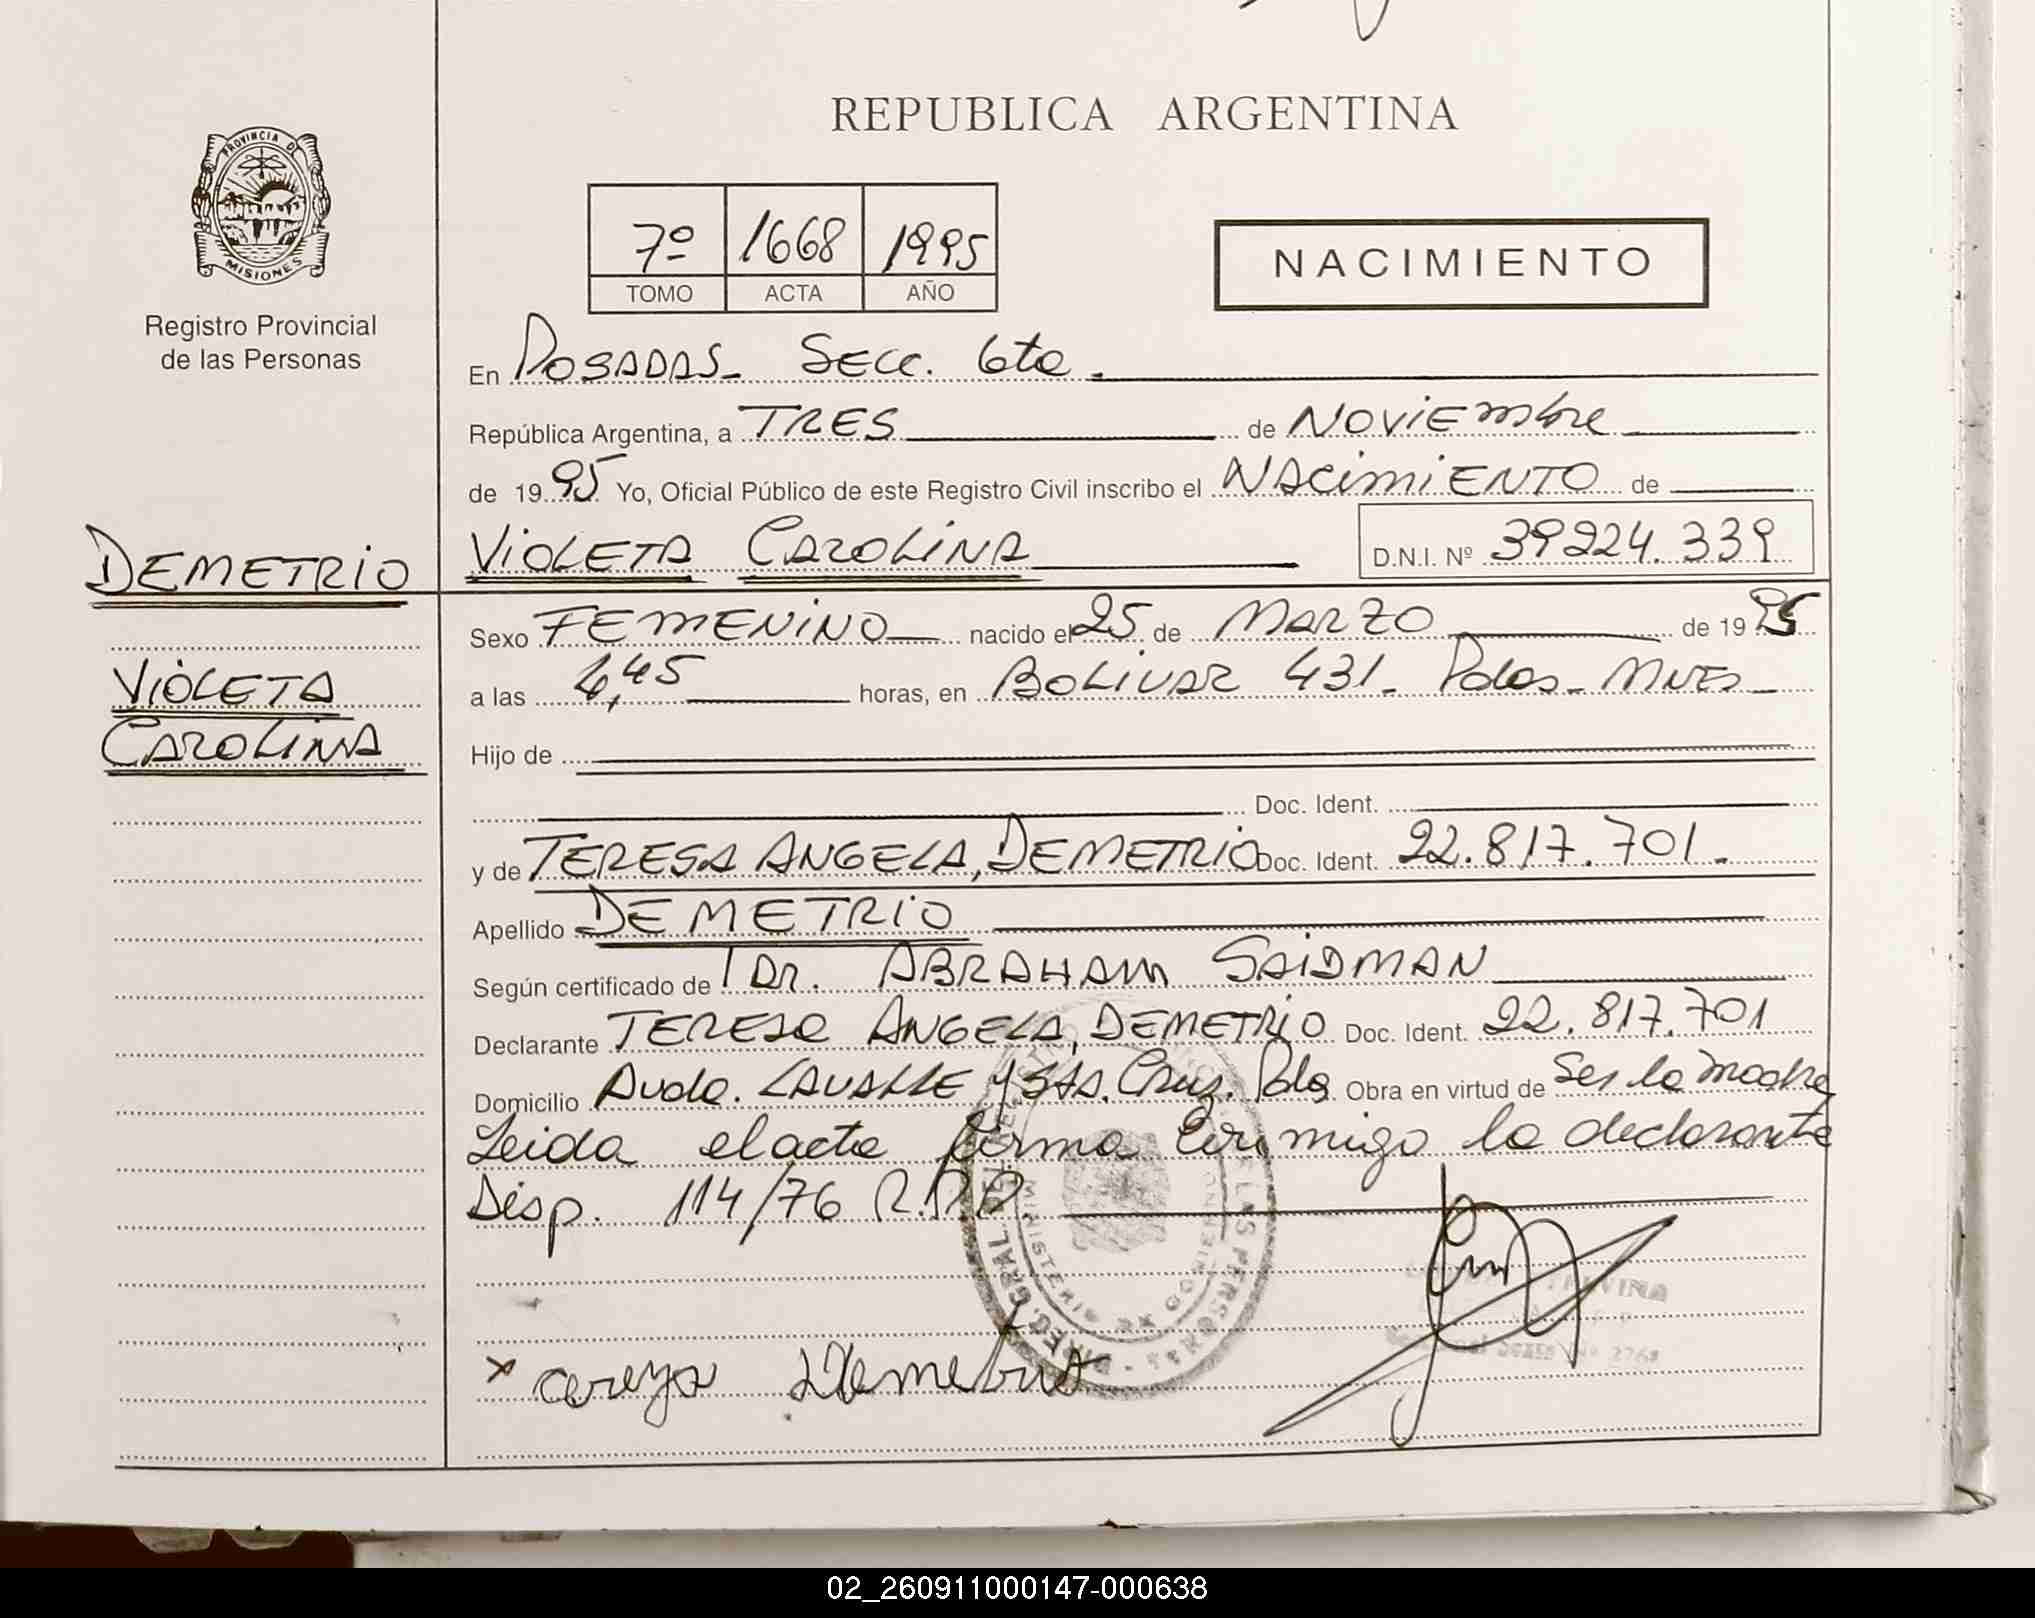 REPUBLICA ARGENTINA
PROVINCIA DE
MISIONES
Registro Provincial
de las Personas
7º 1668 1995
TOMO ACTA AÑO
NACIMIENTO
En POSADAS- SECC. 6ta.
República Argentina, a TRES de NOVIEmbre
de 1995 Yo, Oficial Público de este Registro Civil inscribo el NACimiENTO de
DEMETRIO
VIOLETA CAROLINA D.N.I. Nº 39224.339
Sexo FEMENINO nacido el 25 de MARZO de 1995
VIOLETA
a las 4,45 horas, en BOLIVAR 431- Pdas- MNES-
CAROLINA
Hijo de
Doc. Ident.
y de TERESA ANGELA, DEMETRIO Doc. Ident. 22.817.701.
Apellido DEMETRIO
Según certificado de Dr. ABRAHAM SAIDMAN
Declarante TERESA ANGELA, DEMETRIO Doc. Ident. 22.817.701
Domicilio Avda. LAVALLE y Sta. Cruz. Pdas Obra en virtud de Ser la madre
Leida el acta firma conmigo la declarante
Disp. 114/76 R.P.P.
DIREC. GRAL. DE LAS PERSONAS
MINISTERIO DE GOBIERNO
x
02_260911000147-000638